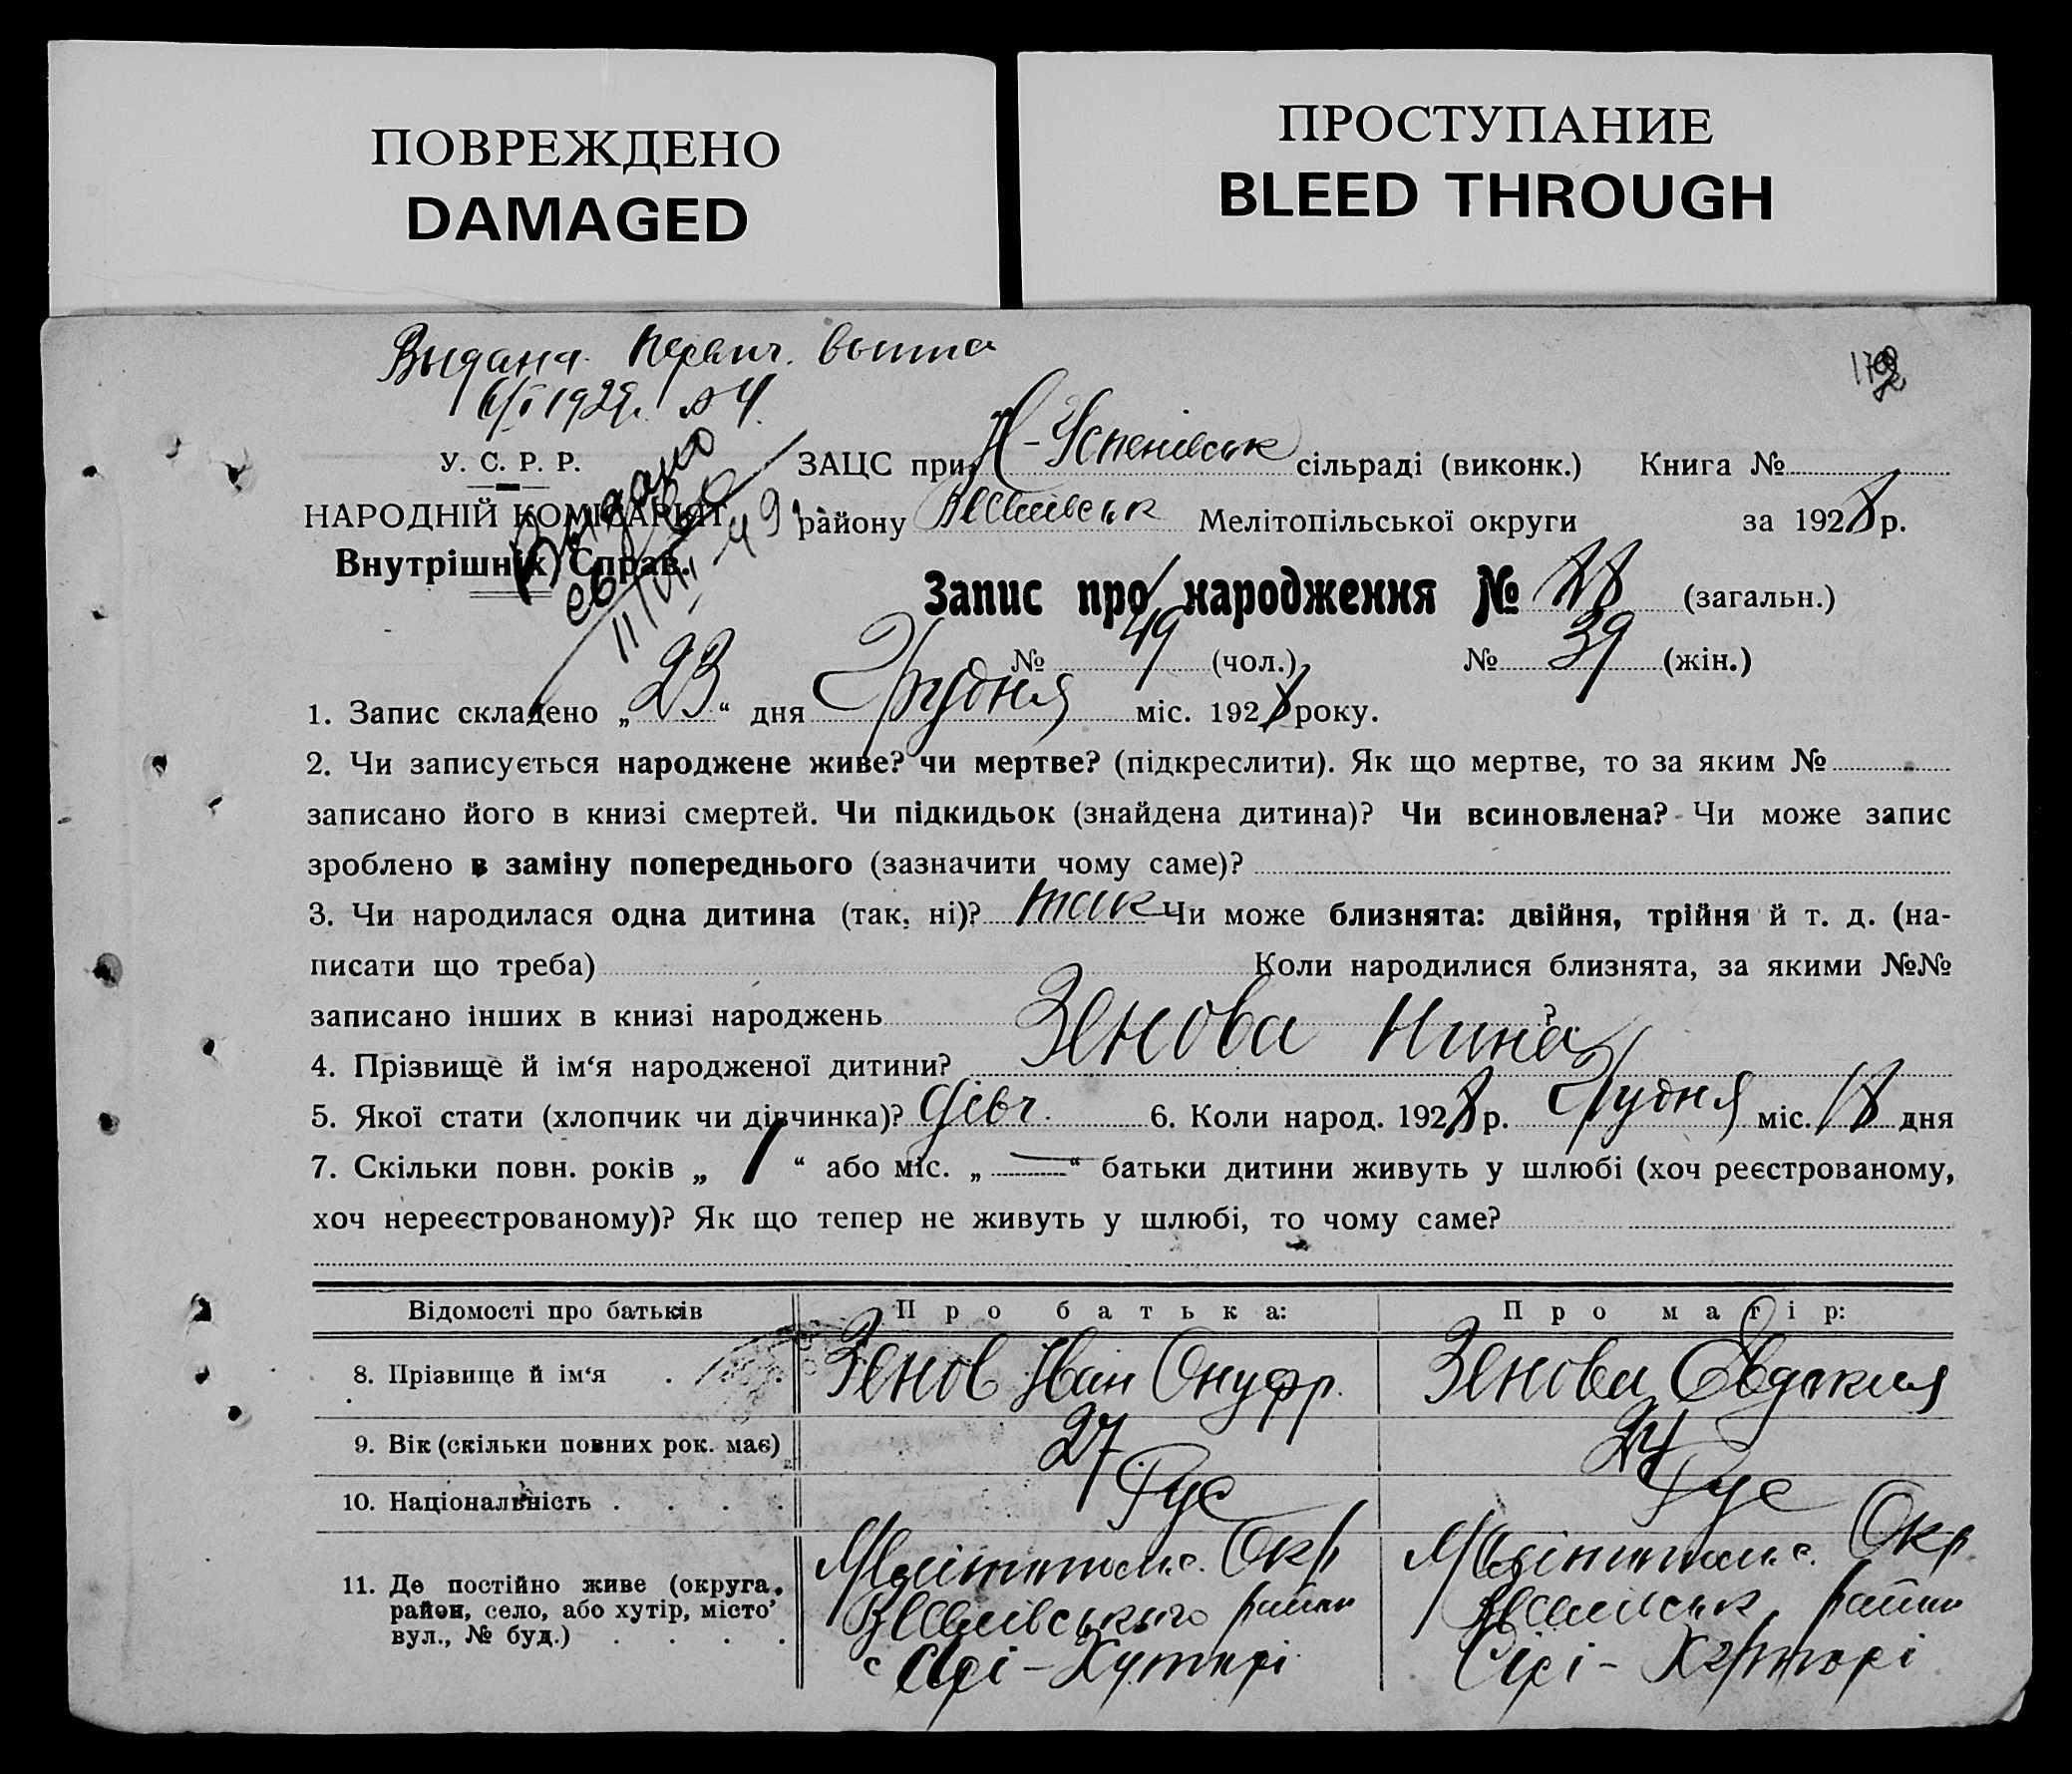 ПОВРЕЖДЕНО
DAMAGED
ПРОСТУПАНИЕ
BLEED THROUGH
Выдана первич. выпис
6/I 1929г. №4.
Выдано
11/VII-49
У. С. Р. Р.
НАРОДНІЙ КОМІСАРІЯТ
Внутрішніх Справ.
ЗАЦС при Н-Успенівськ сільраді (виконк.) Книга №
району Веселівськ Мелітопільської округи за 1928 р.
Запис про народження № 88 (загальн.)
№ 49 (чол.) № 39 (жін.)
1. Запис складено „23“ дня Грудня міс. 1928 року.
2. Чи записується народжене живе? чи мертве? (підкреслити). Як що мертве, то за яким №
записано його в книзі смертей. Чи підкидьок (знайдена дитина)? Чи всиновлена? Чи може запис
зроблено в заміну попереднього (зазначити чому саме)?
3. Чи народилася одна дитина (так, ні)? так Чи може близнята: двійня, трійня й т. д. (на-
писати що треба) Коли народилися близнята, за якими №№
записано інших в книзі народжень ?
4. Прізвище й ім‘я народженої дитини? Зенова Нина
5. Якої стати (хлопчик чи дівчинка)? дівч. 6. Коли народ. 1928 р. Грудня міс. 18 дня
7. Скільки повн. років „ 1 “ або міс. „ — “ батьки дитини живуть у шлюбі (хоч реєстрованому,
хоч нереєстрованому)? Як що тепер не живуть у шлюбі, то чому саме?
Відомості про батьків Про батька: Про матір:
8. Прізвище й ім‘я Зенов Іван Онуфр. Зенова Євдокия
9. Вік (скільки повних рок. має) 27 24
10. Національність Рус Рус
11. Де постійно живе (округа, район, село, або хутір, місто, вул., № буд.)
Мелітополс. Окр Веселівського район с Сірі-Хуторі
Мелітополс. Окр. Веселівськ район Сірі-Хуторі